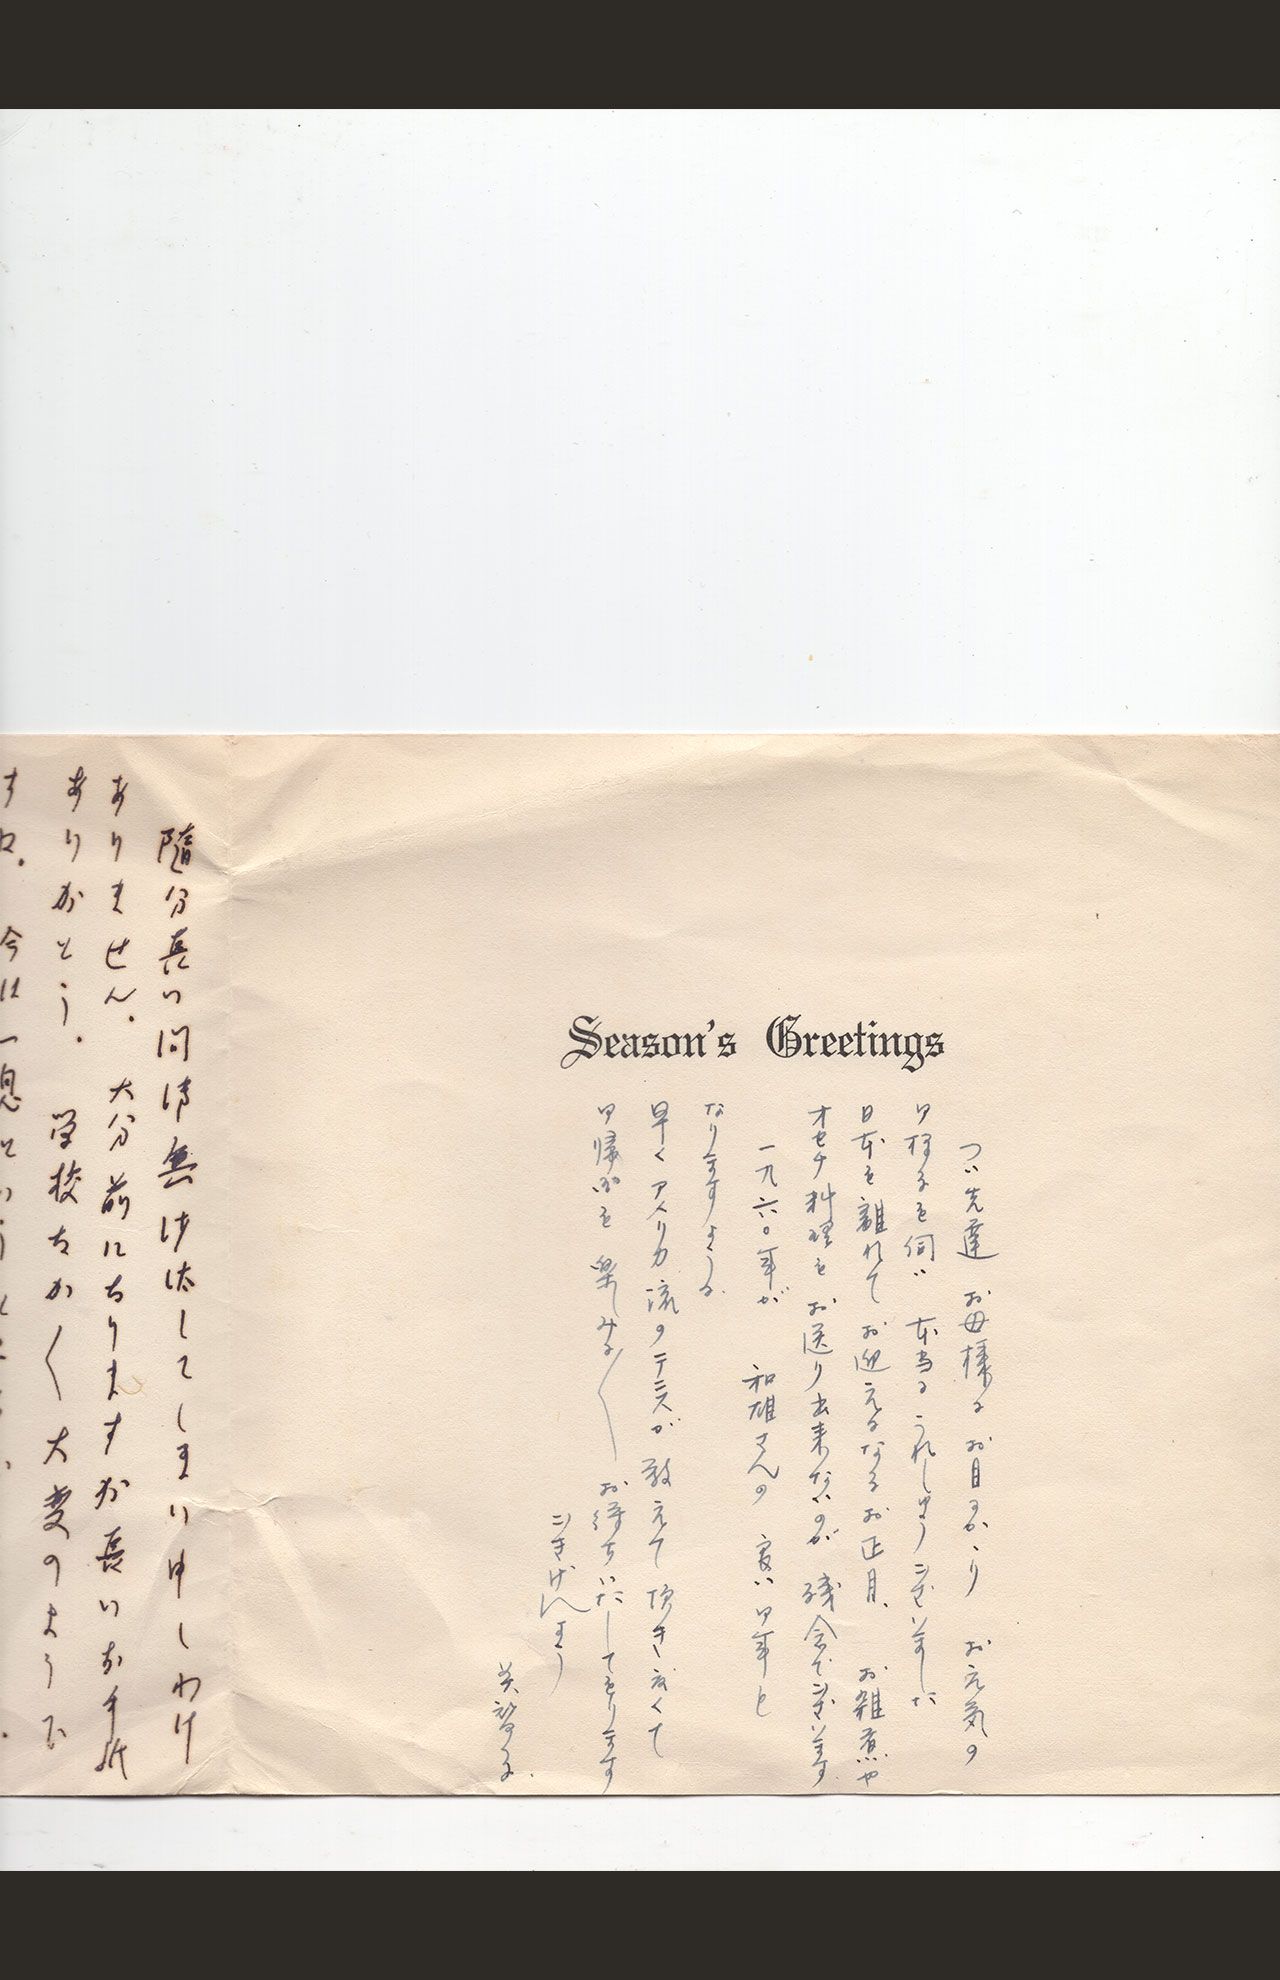 Season's Greetings
つい先達 お母様にお目にかゝり お元気の
御様子を伺い 本当にうれしゅうございました
日本を離れてお迎えになるお正月、お雑煮や
オセチ料理をお送り出来ないのが残念でございます
一九六〇年が 和雄さんの 良い御年と
なりますように
早くアメリカ流のテニスが教えて頂きたくて
御帰京を楽しみに〱お待ちいたしてをります
ごきげんよう
美智子
随分長い間御無沙汰してしまい申しわけ
ありません。大分前になりますが長いお手紙
ありがとう。学校なかく大変のようで
すね。今は一息という